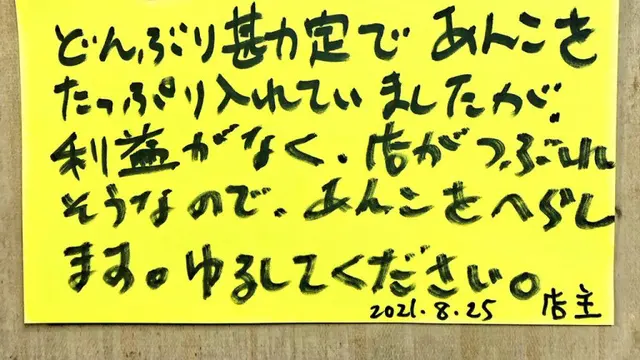 どんぶり勘定で あんこを
たっぷり入れていましたが、
利益がなく、店がつぶれ
そうなので、あんこをへらし
ます。ゆるしてください。
2021.8.25 店主